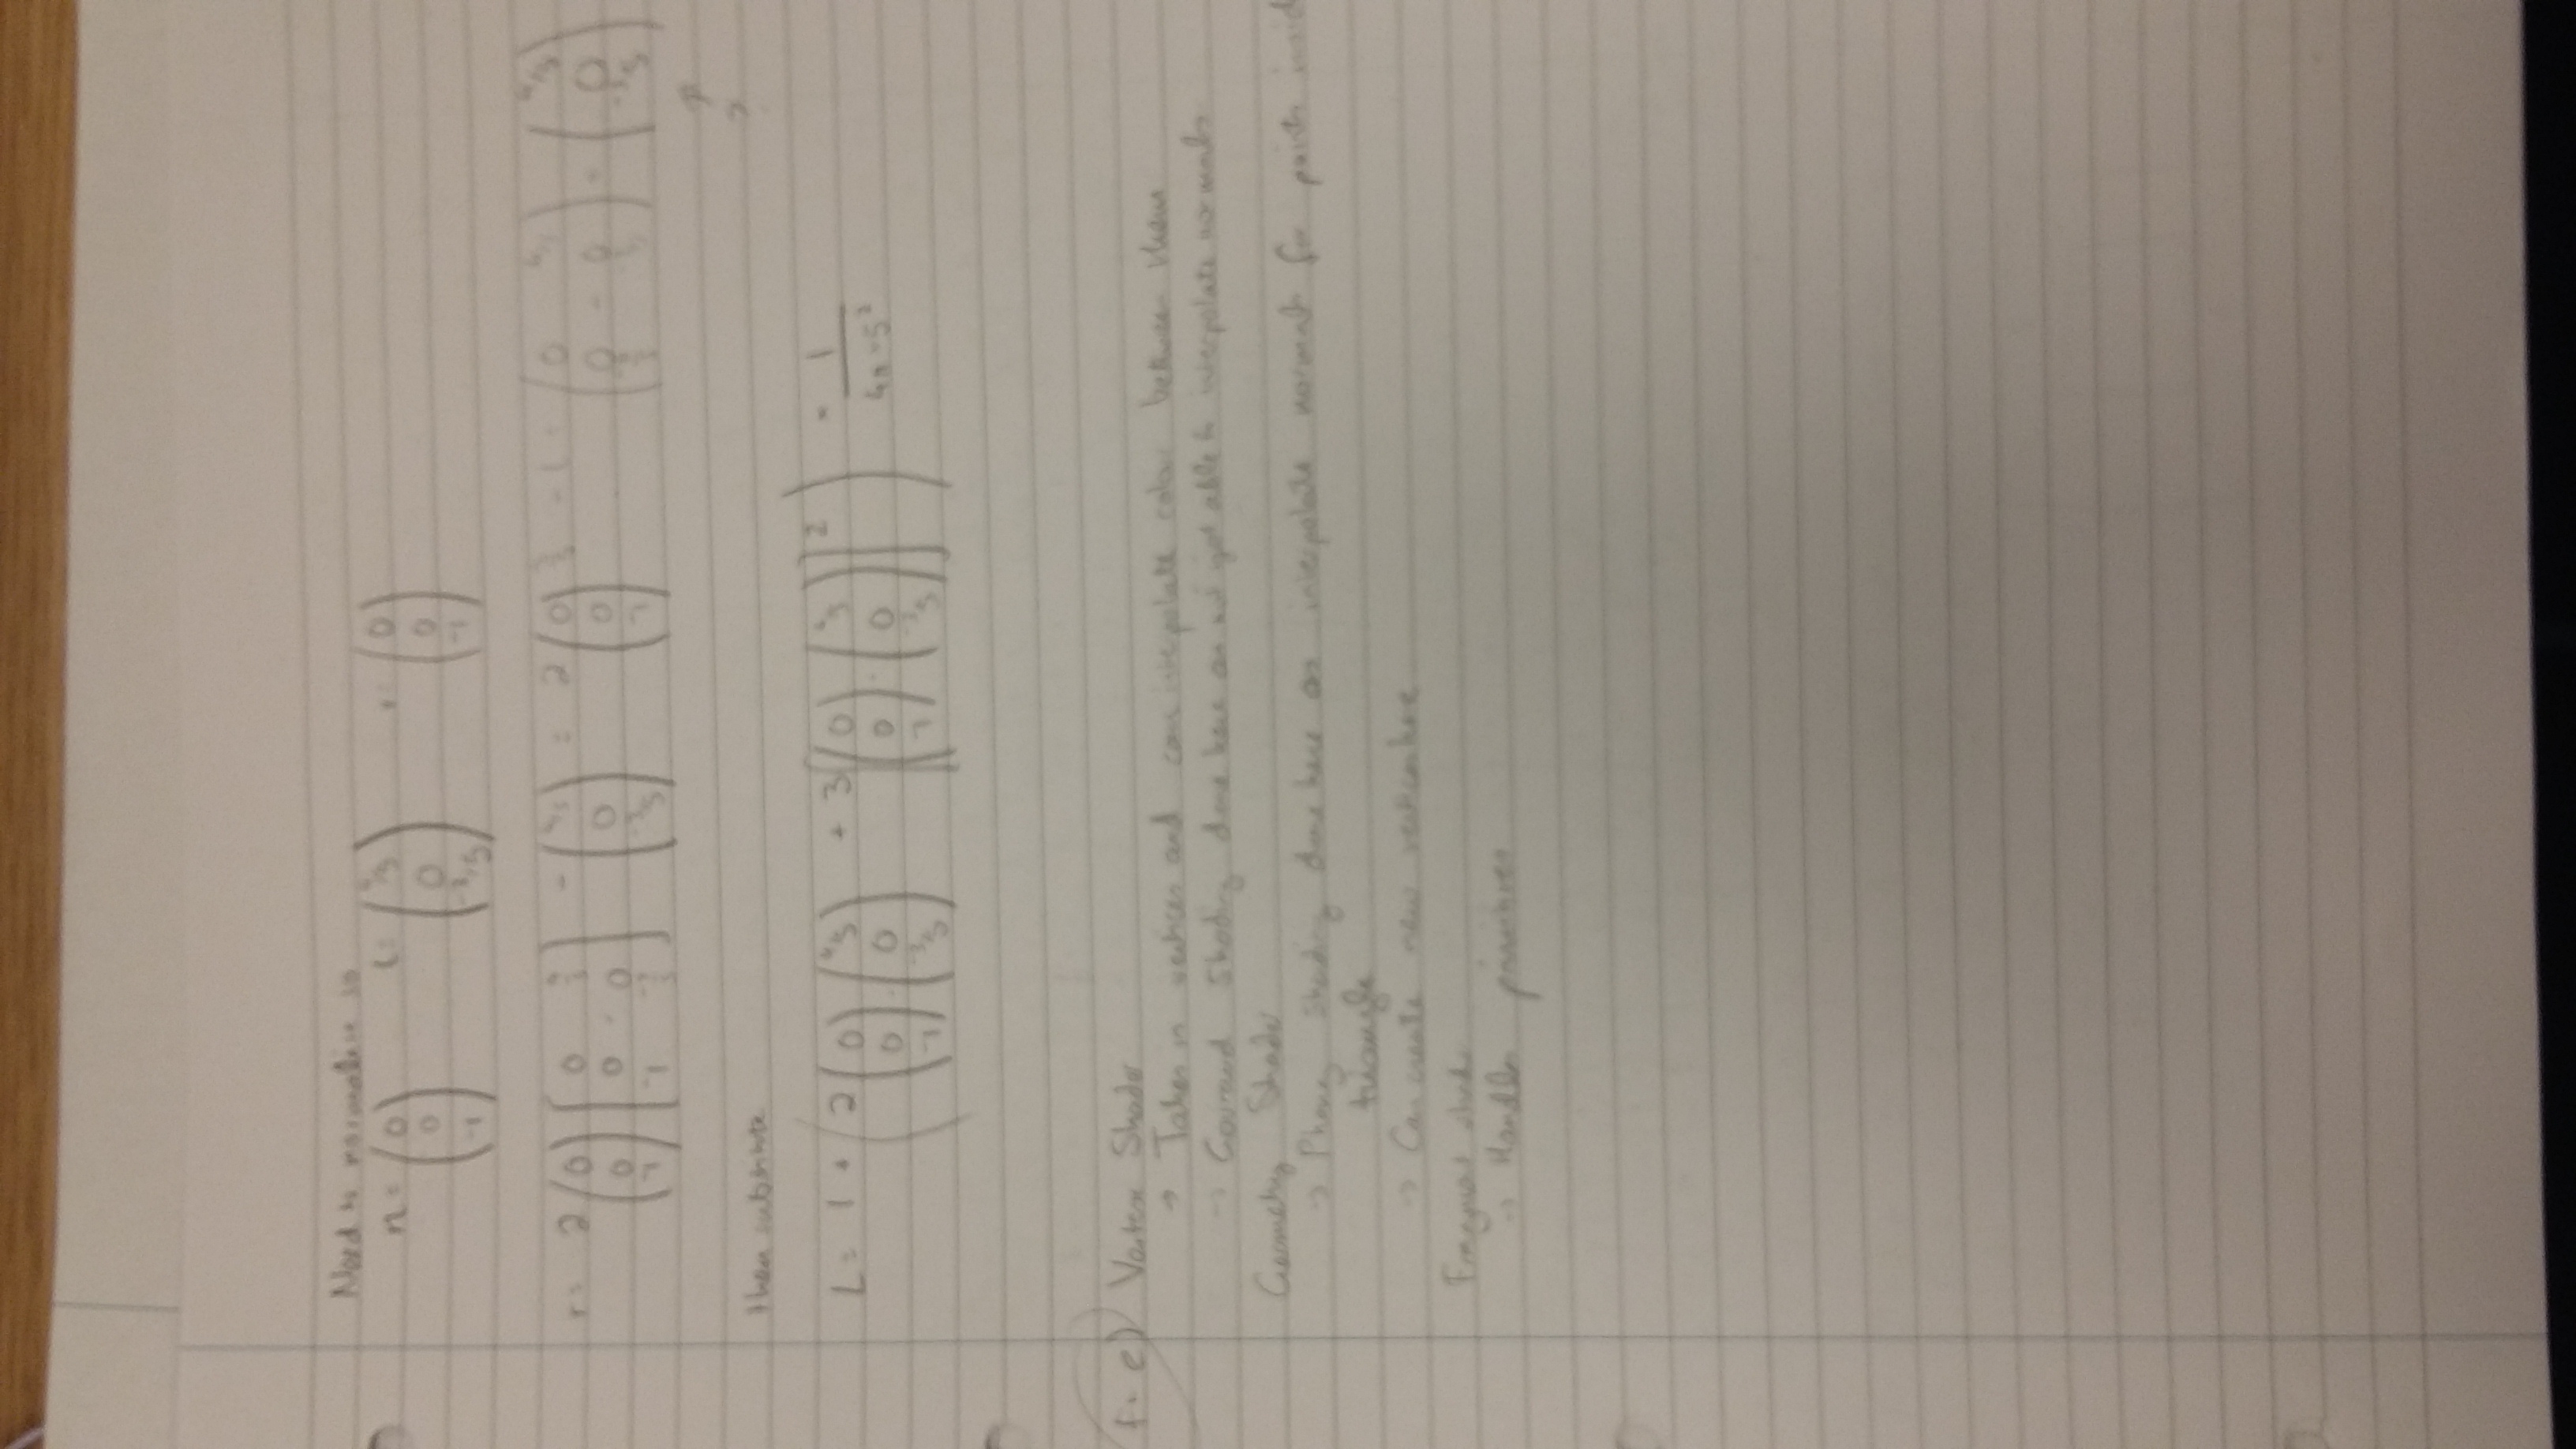 Need to normalise so
n = (0 0 -1) l = (4/5 0 -3/5) v = (0 0 -1)
r = 2 (0 0 -1) [(0 0 -1) · (4/5 0 -3/5)] - (4/5 0 -3/5) = 2 (0 0 -1) 3/5 - l = -
?
then substitute
L = 1 + (2 (0 0 -1) · (4/5 0 -3/5) + 3 [(0 0 -1) · (4/5 0 -3/5)]²) 1/4π 5²
e) Vertex Shader
→ Takes in vertices and can interpolate colour between them
→ Gouraud Shading done here as not yet able to interpolate normals
Geometry Shader
→ Phong shading done here as interpolate normals for points
triangle
→ Can create new vertices here
Fragment
→ Handles primitives